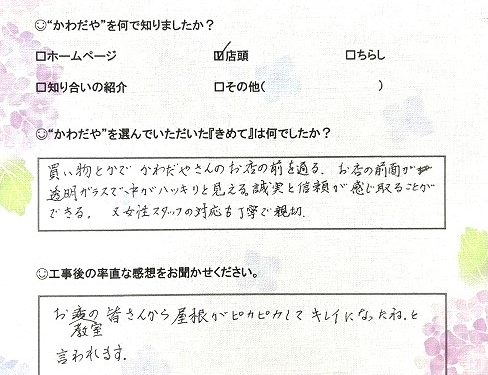 ☺“かわだや”を何で知りましたか？
□ホームページ ☑店頭 □ちらし
□知り合いの紹介 □その他( )
☺“かわだや”を選んでいただいた『きめて』は何でしたか？
買い物とかで かわだやさんのお店の前を通る． お店の前面が
透明ガラスで、中がハッキリと見える，誠実と信頼が感じ取ることが
できる． 又女性スタッフの対応も丁寧で親切．
☺工事後の率直な感想をお聞かせください。
お の皆さんから屋根がピカピカして キレイになったね。と
教室
言われます．